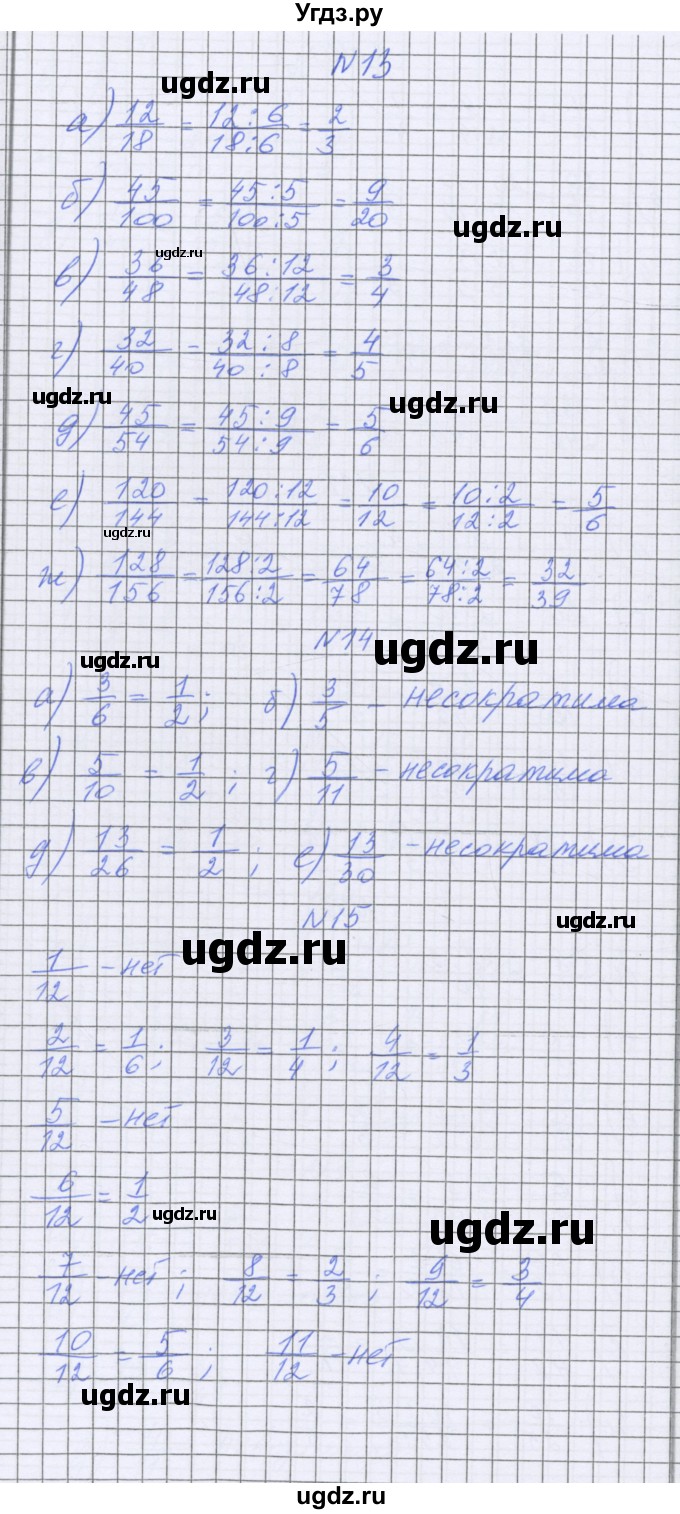 Угдз.ру
N13
ugdz.ru
а) 12/18 = 12:6/18:6 = 2/3
б) 45/100 = 45:5/100:5 = 9/20
ugdz.ru
ugdz.ru
в) 36/48 = 36:12/48:12 = 3/4
г) 32/40 = 32:8/40:8 = 4/5
ugdz.ru
ugdz.ru
д) 45/54 = 45:9/54:9 = 5/6
е) 120/144 = 120:12/144:12 = 10/12 = 10:2/12:2 = 5/6
ugdz.ru
ж) 128/156 = 128:2/156:2 = 64/78 = 64:2/78:2 = 32/39
N14
ugdz.ru
ugdz.ru
а) 3/6 = 1/2; б) 3/5 - несократима
в) 5/10 = 1/2; г) 5/11 - несократима
д) 13/26 = 1/2; е) 13/30 - несократима
N15
ugdz.ru
ugdz.ru
1/12 - нет
2/12 = 1/6; 3/12 = 1/4; 4/12 = 1/3
5/12 - нет
6/12 = 1/2
ugdz.ru
ugdz.ru
7/12 - нет; 8/12 = 2/3; 9/12 = 3/4
10/12 = 5/6; 11/12 - нет
ugdz.ru
ugdz.ru